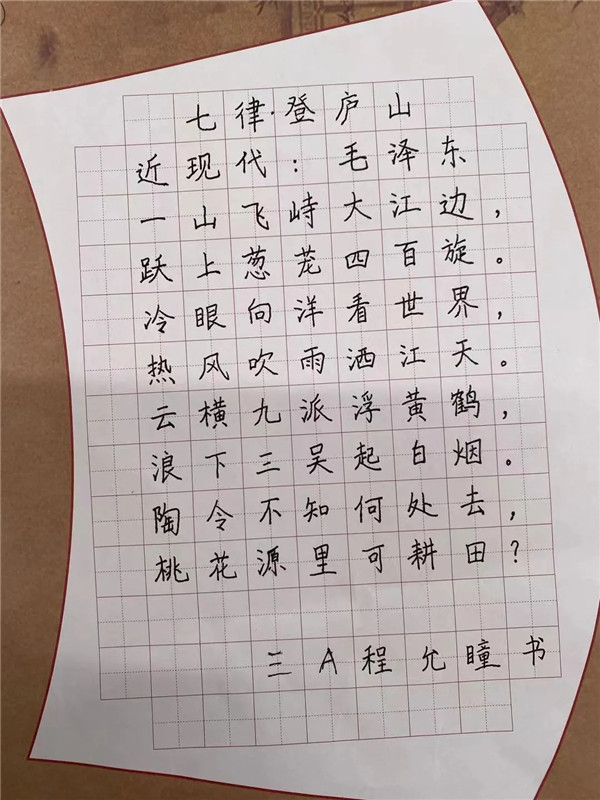 七律·登庐山
近现代：毛泽东
一山飞峙大江边，
跃上葱茏四百旋。
冷眼向洋看世界，
热风吹雨洒江天。
云横九派浮黄鹤，
浪下三吴起白烟。
陶令不知何处去，
桃花源里可耕田？
三A程允瞳书